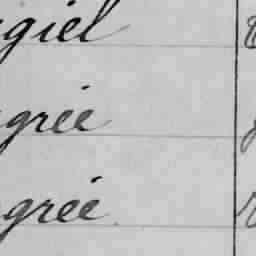 giel
grée
grée